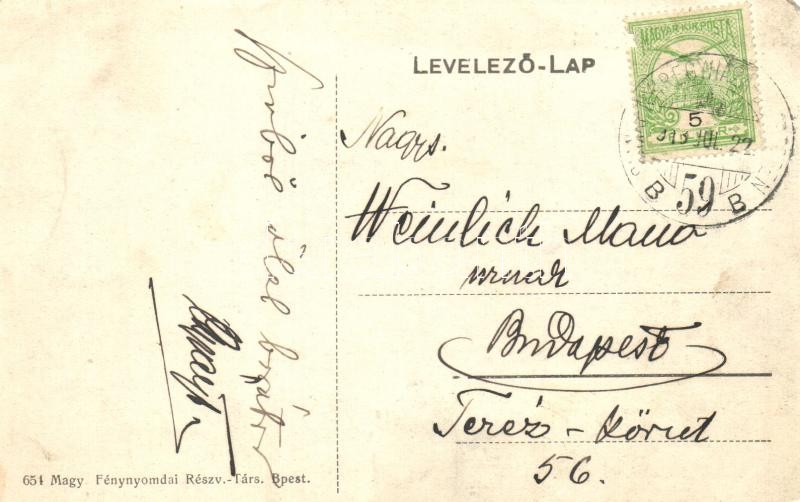 LEVELEZŐ-LAP
MAGYAR KIR. POSTA
5
913 JUL 22
B 59 B
Nagys.
Weinlich Manó
urnak
Budapest
Teréz-körut
56.
ölel
654 Magy. Fénynyomdai Részv.-Társ. Bpest.